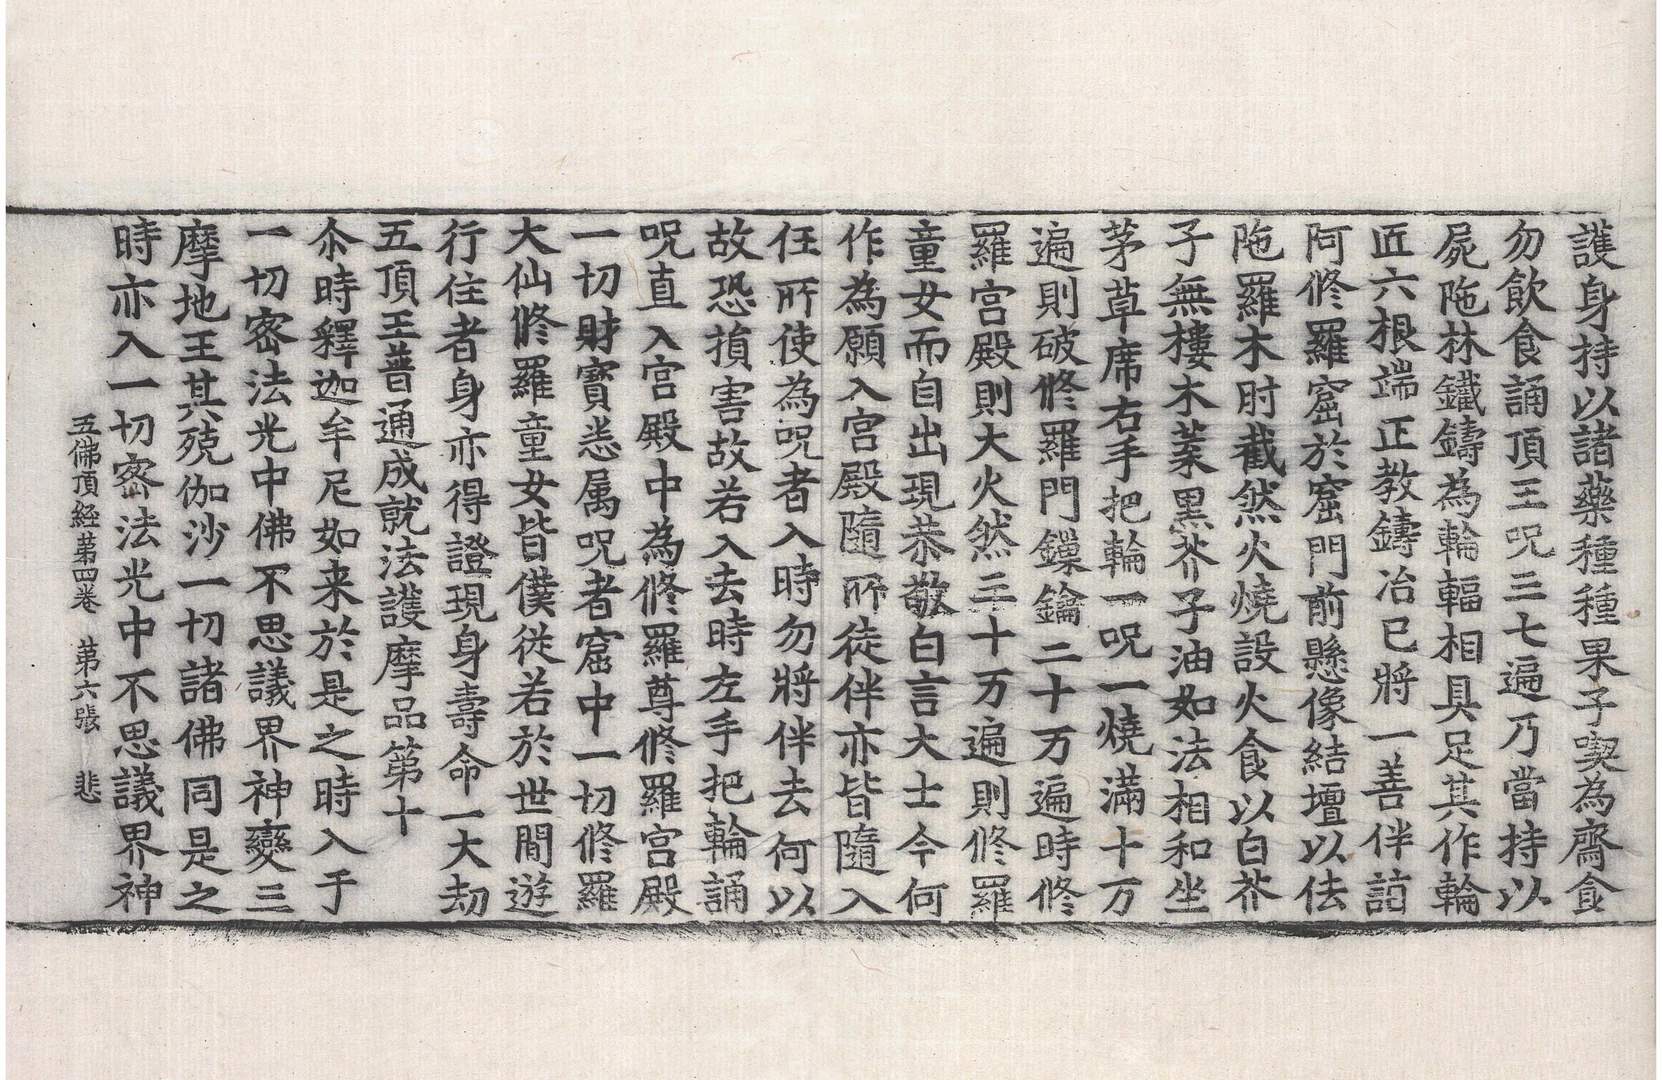 護身持以諸藥種種果子喫為齋食
勿飲食誦頂王呪三七遍乃當持以
屍陁林鐵鑄為輪輻相具足其作輪
匠六根端正教鑄冶已將一善伴詣
阿脩羅窟於窟門前懸像結壇以佉
陁羅木肘截然火燒設火食以白芥
子無樓木葉黑芥子油如法相和坐
茅草席右手把輪一呪一燒滿十万
遍則破脩羅門鏁鑰二十万遍時脩
羅宮殿則大火然三十万遍則脩羅
童女而自出現恭敬白言大士今何
作為願入宮殿隨所徒伴亦皆隨入
任所使為呪者入時勿將伴去何以
故恐損害故若入去時左手把輪誦
呪直入宮殿中為脩羅尊脩羅宮殿
一切財寶悉属呪者窟中一切脩羅
大仙脩羅童女皆僕從若於世間遊
行住者身亦得證現身壽命一大劫
五頂王普通成就法護摩品第十
尒時釋迦牟尼如来於是之時入于
一切密法光中佛不思議界神變三
摩地王其殑伽沙一切諸佛同是之
時亦入一切密法光中不思議界神
五佛頂經第四卷 第六張 悲